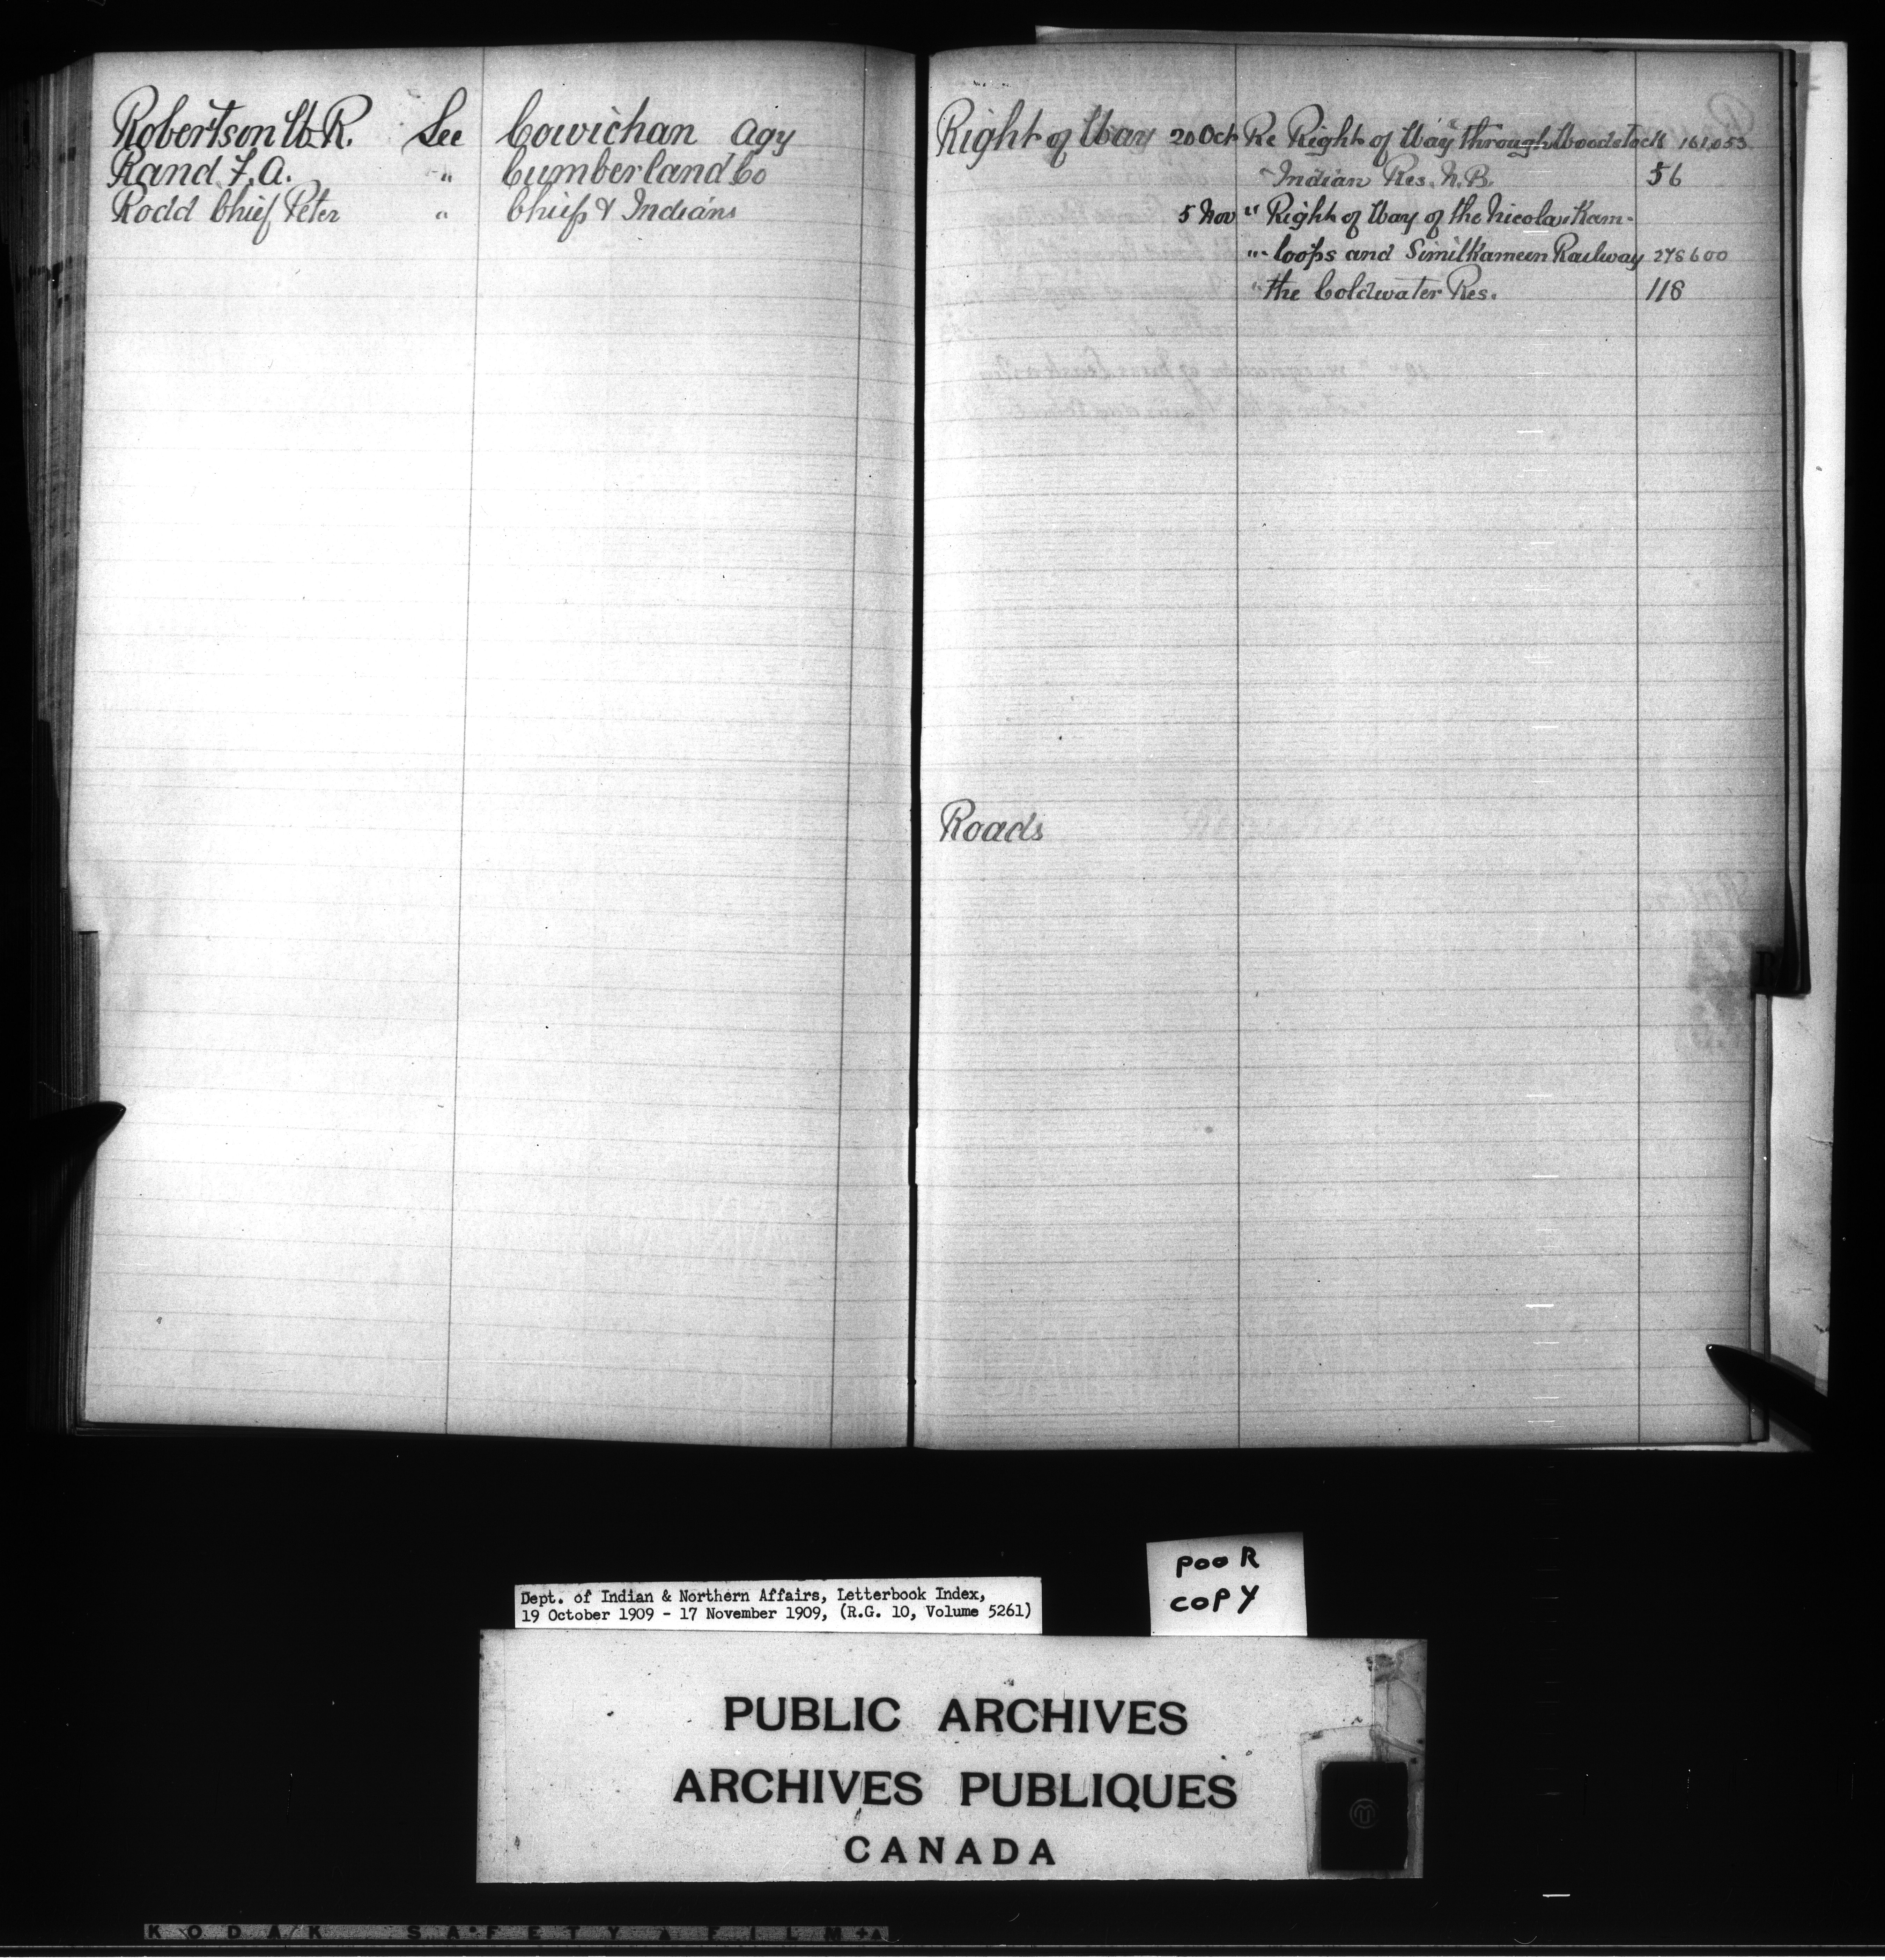 Robertson W.R. See Cowichan Agy
Rand F.A. " Cumberland Co
Rodd Chief Peter " Chiefs & Indians
Right of Way 20 Oct Re Right of Way through Woodstock 161,053
" Indian Res. N.B. 56
5 Nov " Right of Way of the Nicola, Kam-
" loops and Similkameen Railway 278600
" the Coldwater Res. 118
Roads
R
Dept. of Indian & Northern Affairs, Letterbook Index,
19 October 1909 - 17 November 1909, (R.G. 10, Volume 5261)
POOR
COPY
PUBLIC ARCHIVES
ARCHIVES PUBLIQUES
CANADA
KODAK SAFETY FILM